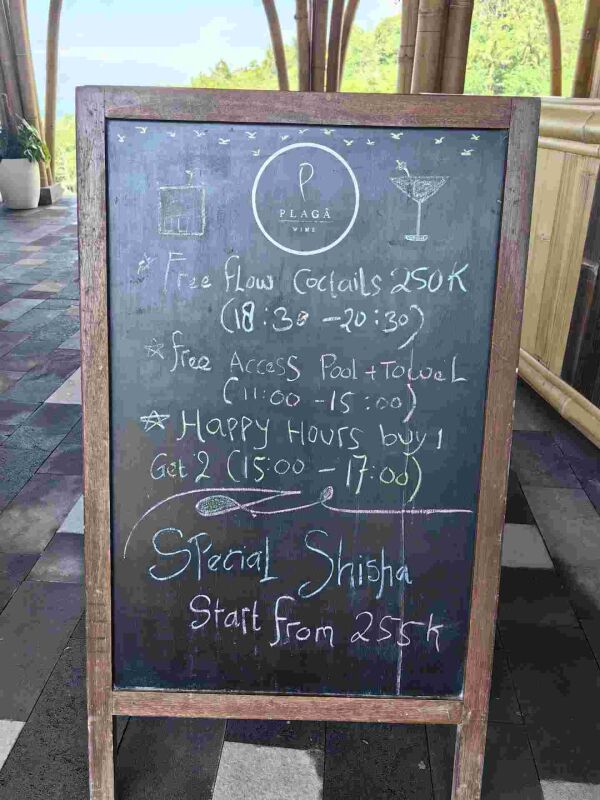 P
PLAGÂ
WINE
Free flow Coctails 250K
(18:30 - 20:30)
free Access Pool + Towel
(11:00 - 15:00)
Happy Hours buy 1
Get 2 (15:00 - 17:00)
Special Shisha
Start from 255K